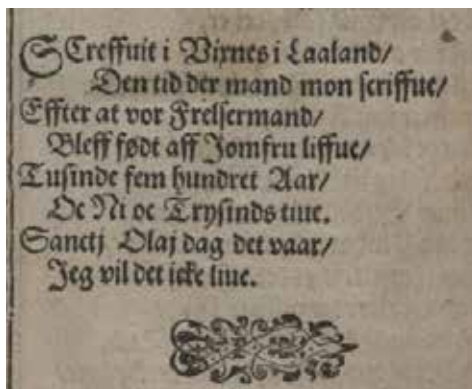 SCreffuit i Vixnes i Laaland/
Den tid der mand mon scriffue/
Effter at vor Frelsermand/
Bleff født aff Jomfru liffue/
Tusinde fem hundret Aar/
Oc Ni oc Trysinds tiue.
Sanctj Olaj dag det vaar/
Jeg vil det icke liue.